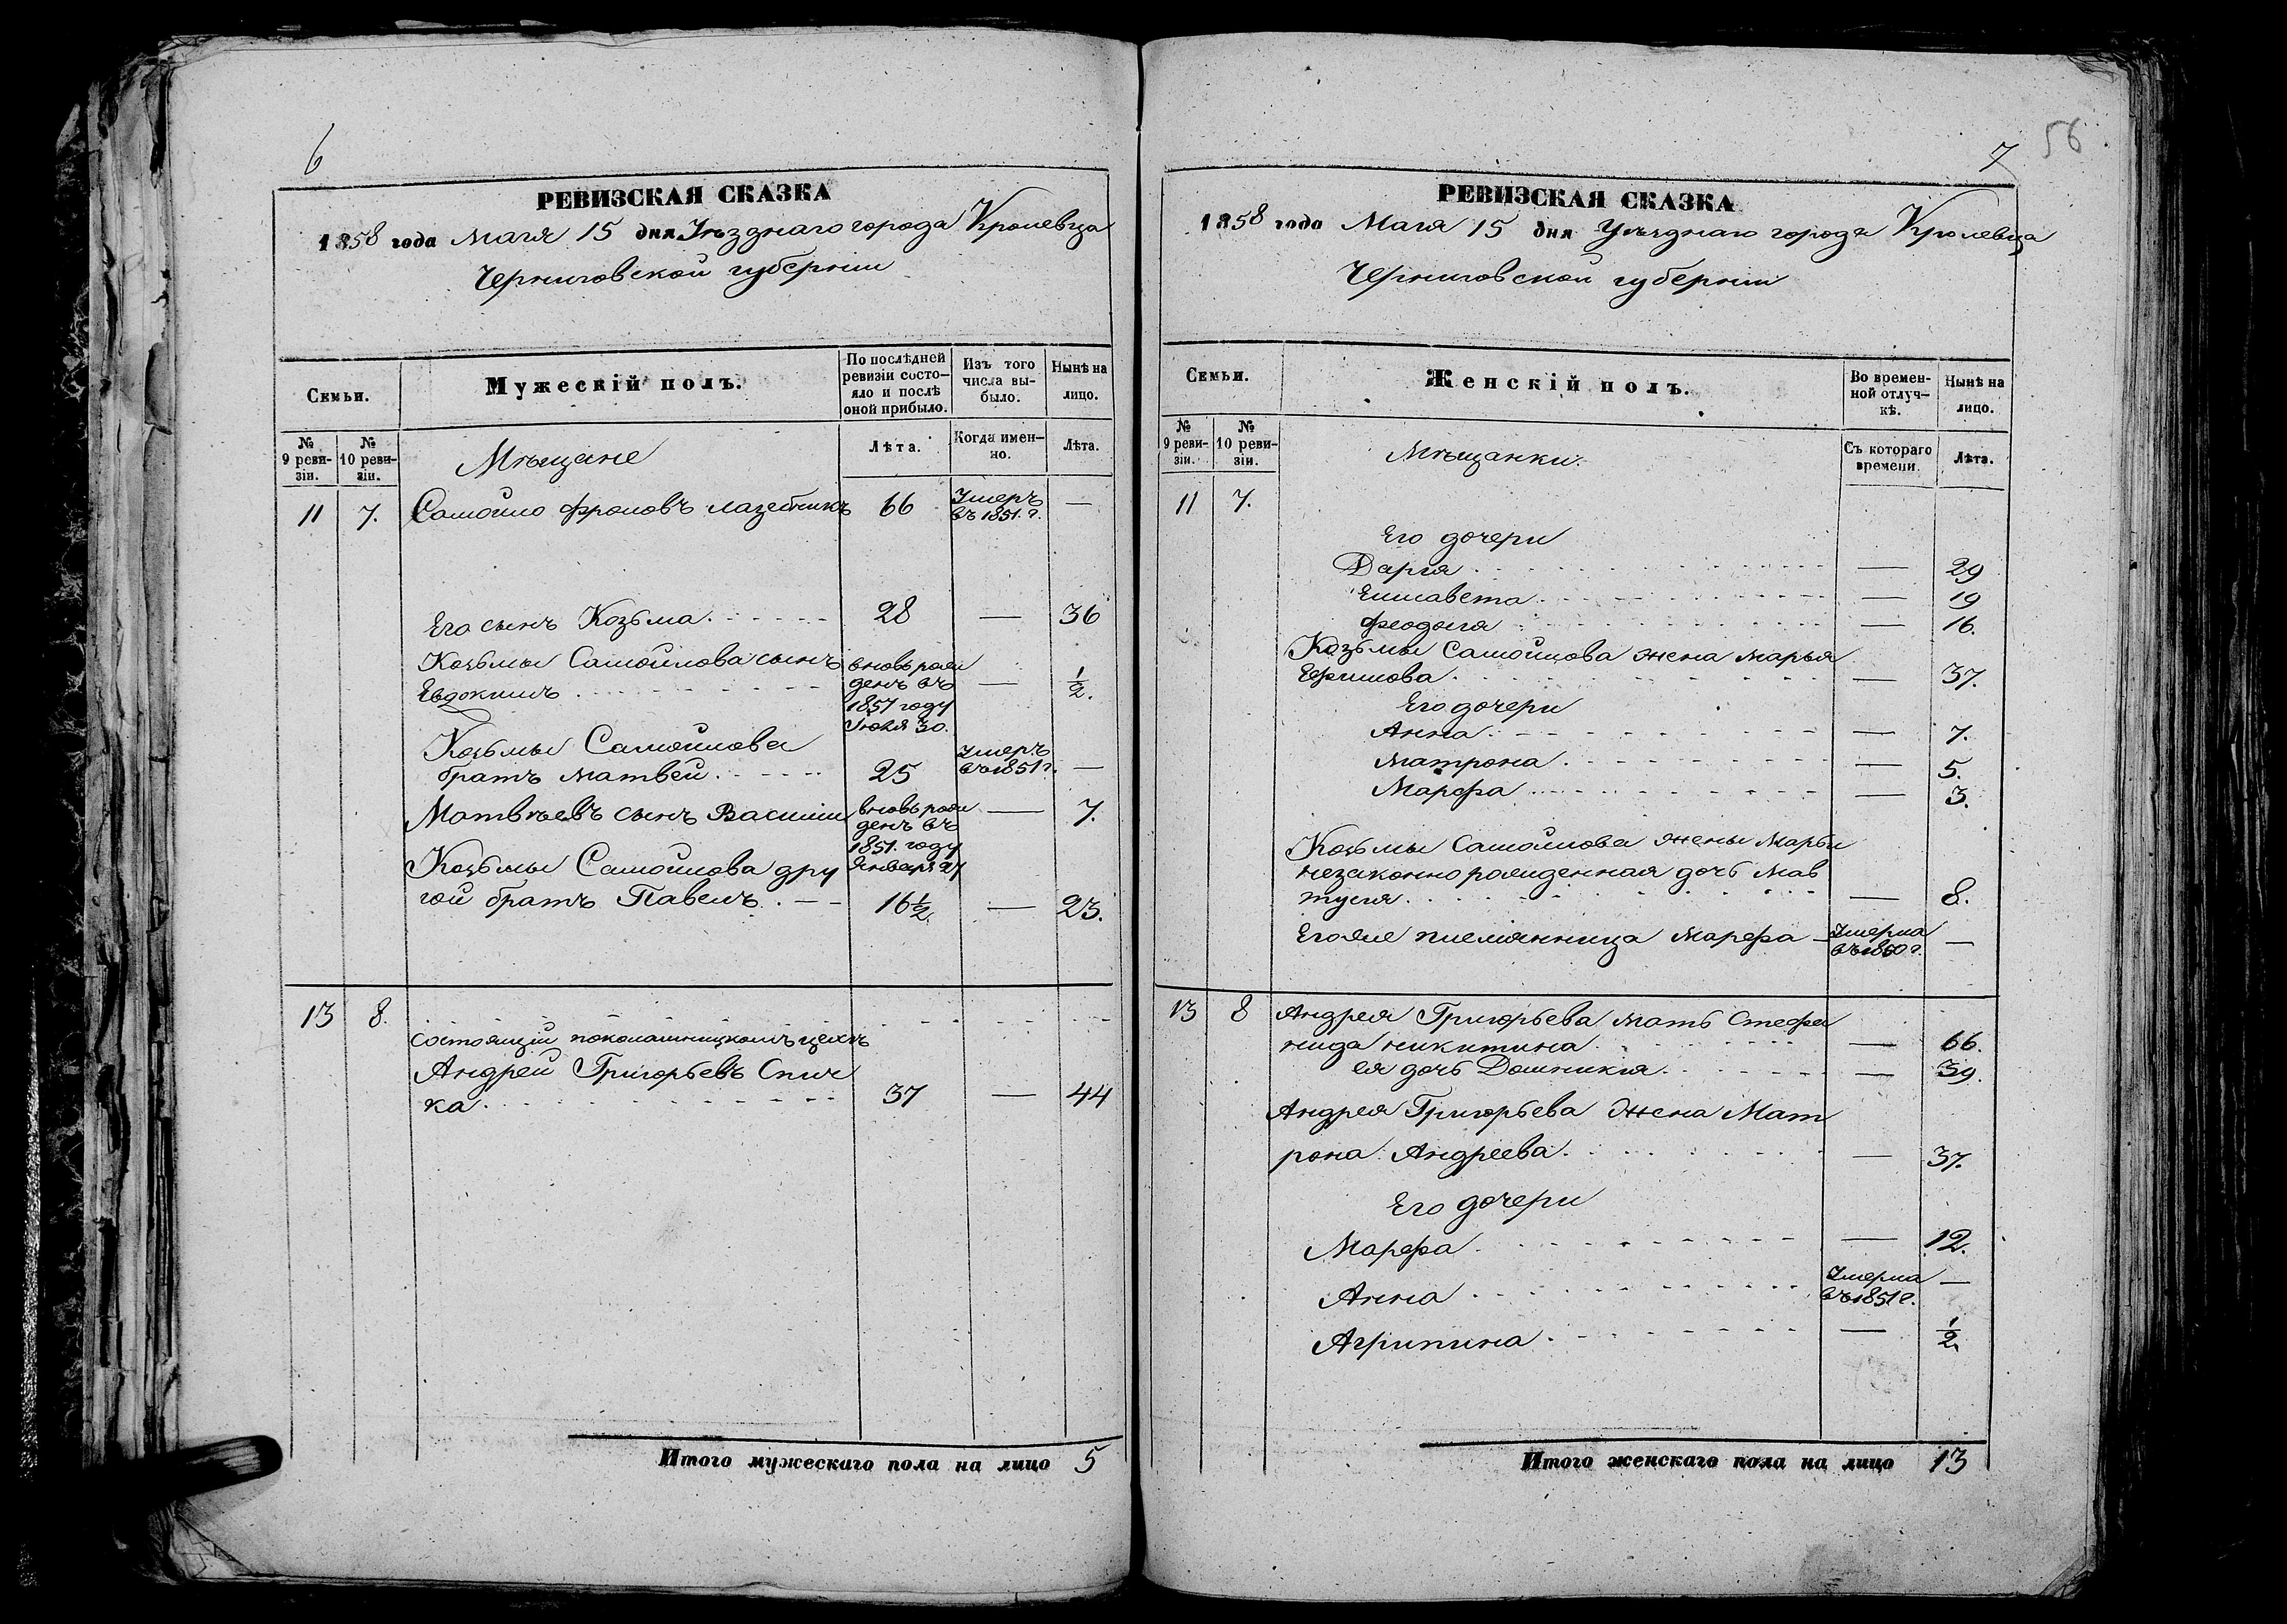 6
РЕВИЗСКАЯ СКАЗКА
1858 года Маія 15 дня Уѣзднаго города Кролевца
Черниговской губерніи
Семьи.
Мужескій полъ.
По послѣдней ревизіи состо-
яло и послѣ оной прибыло.
Изъ того числа вы-
было.
Нынѣ на лицо.
№ 9 реви-
зіи.
№ 10 реви-
зіи.
Мѣщане
Лѣта.
Когда имен-
но.
Лѣта.
11 7. Самойло Фроловъ Лазебникъ 66 Умеръ въ 1851. г. —
Его сынъ Козьма 28 — 36
Козьмы Самойлова сынъ
Евдокимъ вновь рож
денъ въ
1857 году
Іюля 30. — 1/2.
Козьмы Самойлова
братъ Матвей 25 Умеръ въ 1851 г. —
Матвѣевъ сынъ Васили вновь рож
денъ въ
1851. году
Января 27 — 7.
Козьмы Самойлова дру
гой братъ Павелъ 16 1/2 — 23.
13 8.
состоящій цехѣ
Андрей Григорьевъ Спич
ка 37 — 44
Итого мужескаго пола на лицо 5
56
7
РЕВИЗСКАЯ СКАЗКА
1858 года Маія 15 дня Уѣзднаго города Кролевца
Черниговской губерніи
Семьи.
Женскій полъ.
Во времен-
ной отлуч-
кѣ.
Нынѣ на лицо.
№ 9 реви-
зіи.
№ 10 реви-
зіи.
Мѣщанки.
Съ котораго времени
Лѣта.
11 7.
Его дочери
Дарія — 29
Елисавета — 19
Феодосія — 16.
Козьмы Самойлова жена Марья
Ефимова — 37.
Его дочери
Анна — 7.
Матрона — 5.
Марфа — 3.
Козьмы Самойлова жены Марьи
незаконно рожденная дочь Мав
— 8.
Его же племянница Марфа Умерла въ 1850 г. —
13 8 Андрея Григорьева мать Стефа
нида Никитина — 66.
ея дочь Домникія — 39.
Андрея Григорьева жена Мат
рона Андреева — 37.
Его дочери
Марфа — 12.
Анна Умерла въ 1851 г. —
Агрипина — 1/2
Итого женскаго пола на лицо 13